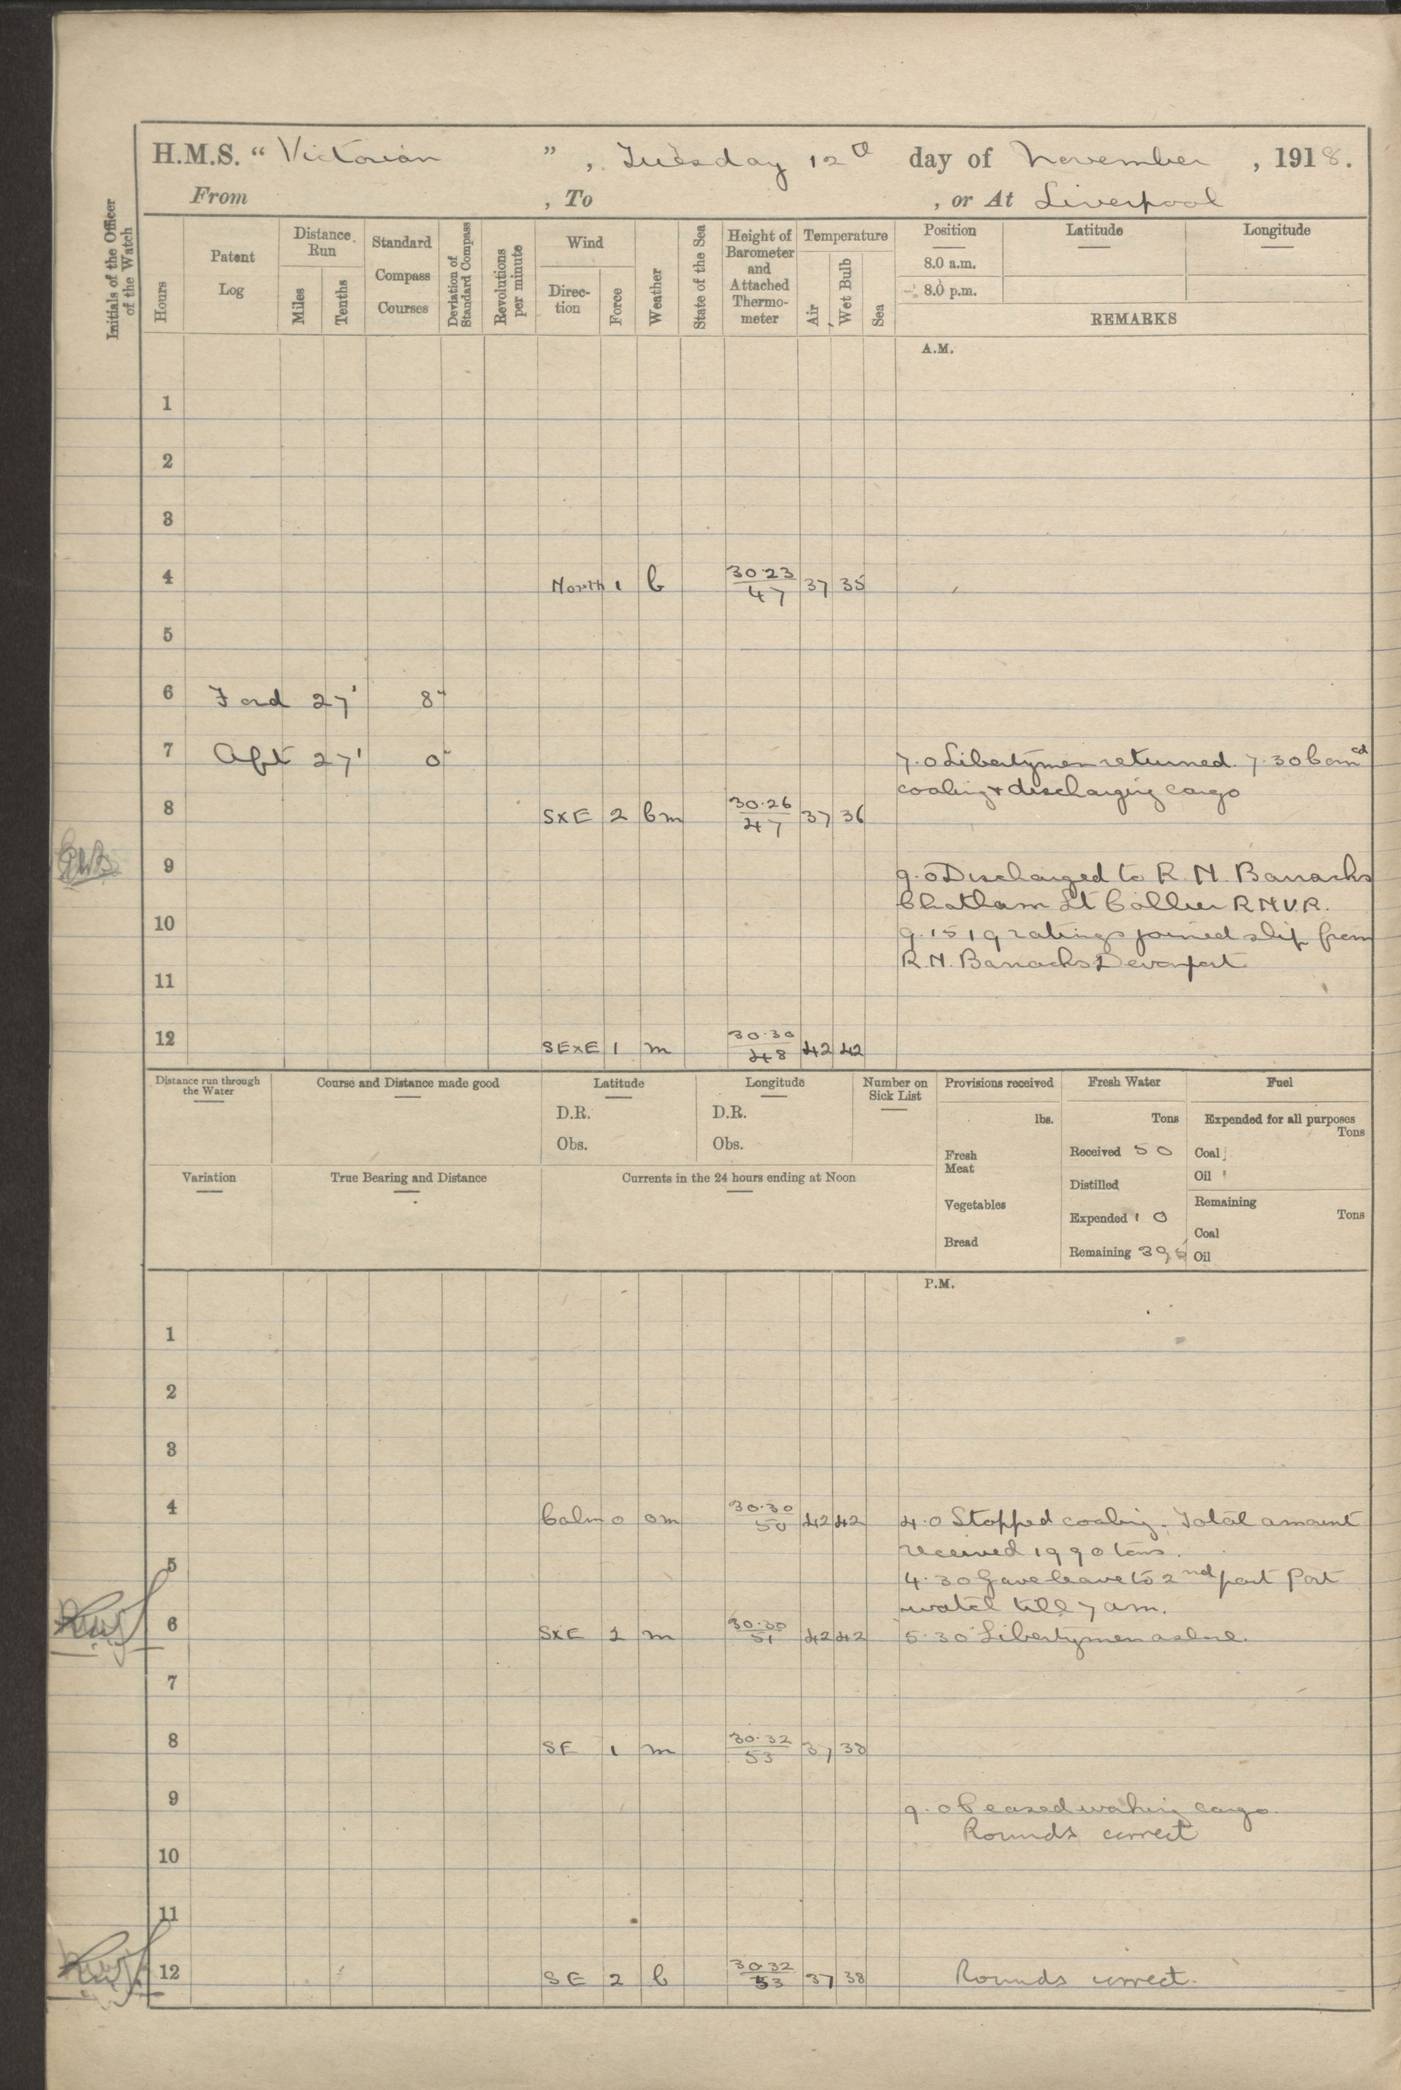 H.M.S. “ Victorian ” , Tuesday 12th day of November , 1918.
From , To , or At Liverpool
Initials of the Officer of the Watch
Hours
Patent Log
Distance Run
Miles
Tenths
Standard Compass Courses
Deviation of Standard Compass
Revolutions per minute
Wind
Direction
Force
Weather
State of the Sea
Height of Barometer and Attached Thermometer
Temperature
Air
Wet Bulb
Sea
Position Latitude Longitude
8.0 a.m.
8.0 p.m.
REMARKS
A.M.
1
2
3
4 North 1 b 30.23/47 37 35
5
6 Ford 27' 8"
7 Aft 27' 0" 7.0 Libertymen returned. 7.30 Comcd
coaling & discharging cargo
8 SxE 2 bm 30.26/47 37 36
9 9.0 Discharged to R.N. Barracks
Chatham Lt Collier R.N.V.R.
10 9.15 19 ratings joined ship from
R.N. Barracks Devonport
11
12 SExE 1 m 30.30/48 42 42
Distance run through the Water
Course and Distance made good
Latitude
D.R.
Obs.
Longitude
D.R.
Obs.
Number on Sick List
Provisions received
lbs.
Fresh Meat
Vegetables
Bread
Fresh Water
Tons
Received 50
Distilled
Expended 10
Remaining
Fuel
Expended for all purposes
Tons
Coal
Oil
Remaining
Tons
Coal
Oil
Variation
True Bearing and Distance
Currents in the 24 hours ending at Noon
P.M.
1
2
3
4 Calm 0 om 30.30/50 42 42 4.0 Stopped coaling. Total amount
received 1990 tons.
5 4.30 Gave leave to 2nd part Port
watch till 7 am.
6 SxE 1 m 30.30/51 42 42 5.30 Libertymen ashore.
7
8 SE 1 m 30.32/53 37 38
9 9.0 Ceased working cargo.
Rounds correct
10
11
12 SE 2 b 30.32/53 37 38 Rounds correct.